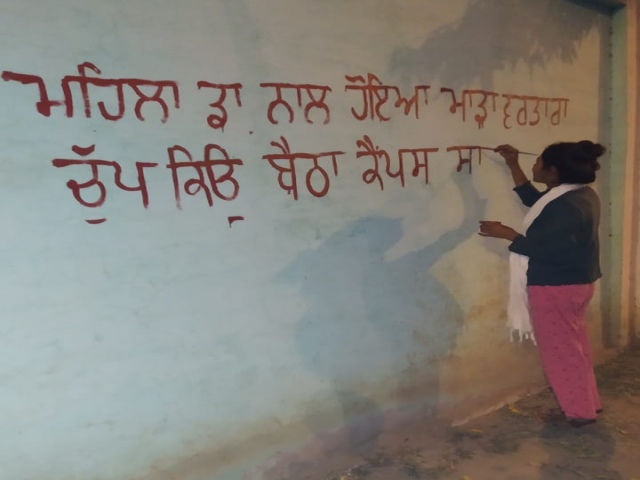 ਮਹਿਲਾ ਡਾ. ਨਾਲ ਹੋਇਆ ਮਾੜਾ ਵਰਤਾਰਾ
ਚੁੱਪ ਕਿਓੁ ਬੈਠਾ ਕੈਂਪਸ ਸਾ